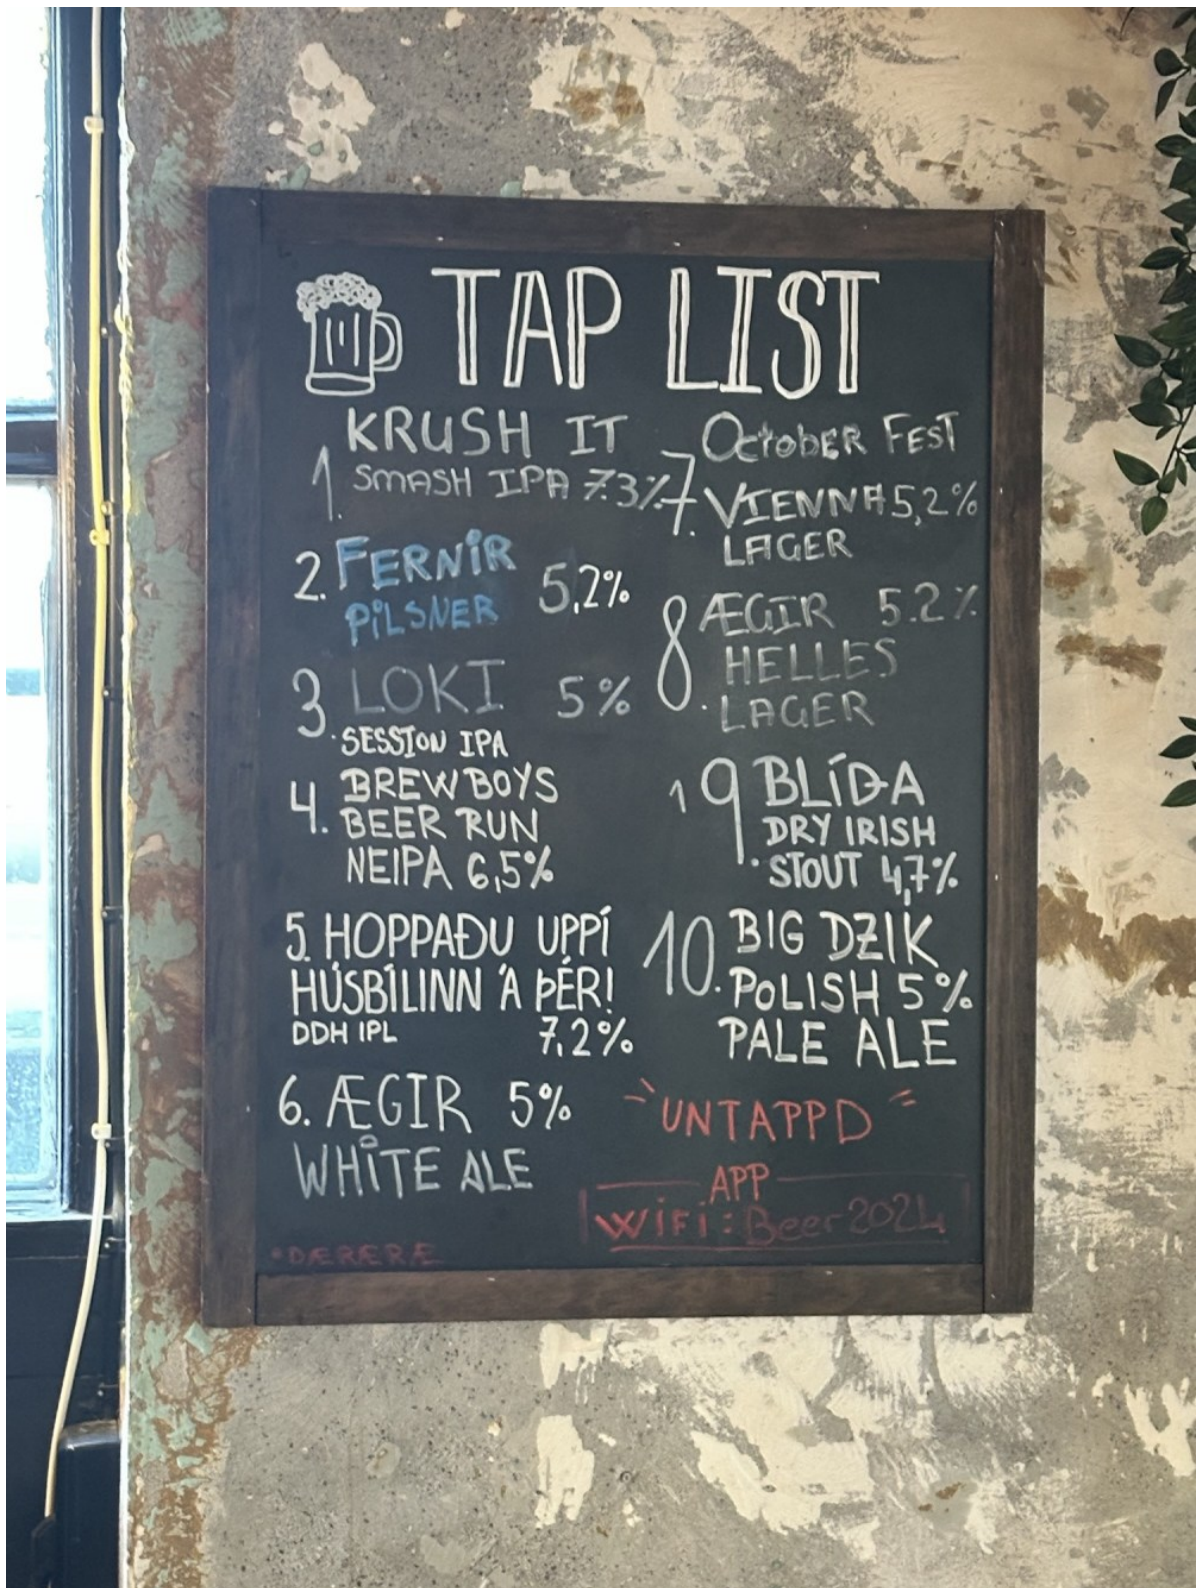 TAP LIST
KRUSH IT
1. SMASH IPA 7.3%
2. FERNIR
PILSNER 5,2%
3. LOKI 5%
SESSION IPA
4. BREW BOYS
BEER RUN
NEIPA 6,5%
5. HOPPAÐU UPPÍ
HÚSBÍLINN 'A ÞÉR!
DDH IPL 7,2%
6. ÆGIR 5%
WHITE ALE
7. October FEST
VIENNA 5,2%
LAGER
8. ÆGIR 5.2%
HELLES
LAGER
9. BLÍÐA
DRY IRISH
STOUT 4,7%
10. BIG DZIK
POLISH 5%
PALE ALE
UNTAPPD
APP
WiFi: Beer2024